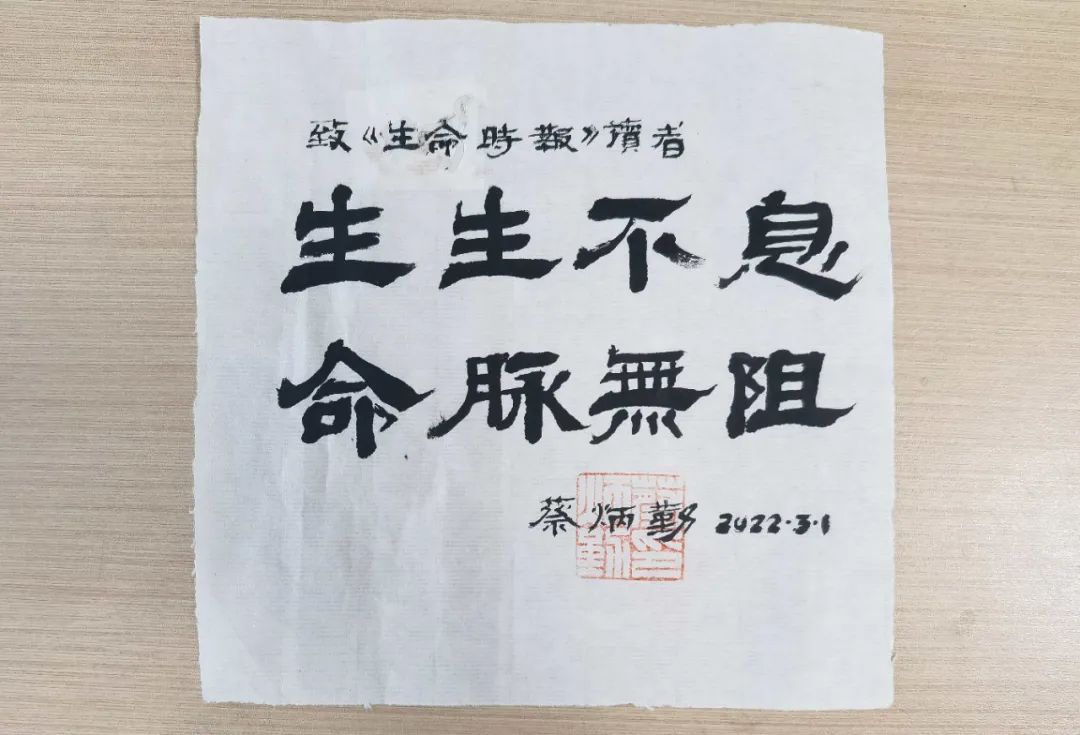 致《生命時報》讀者
生生不息
命脉無阻
蔡炳勤 2022·3·1